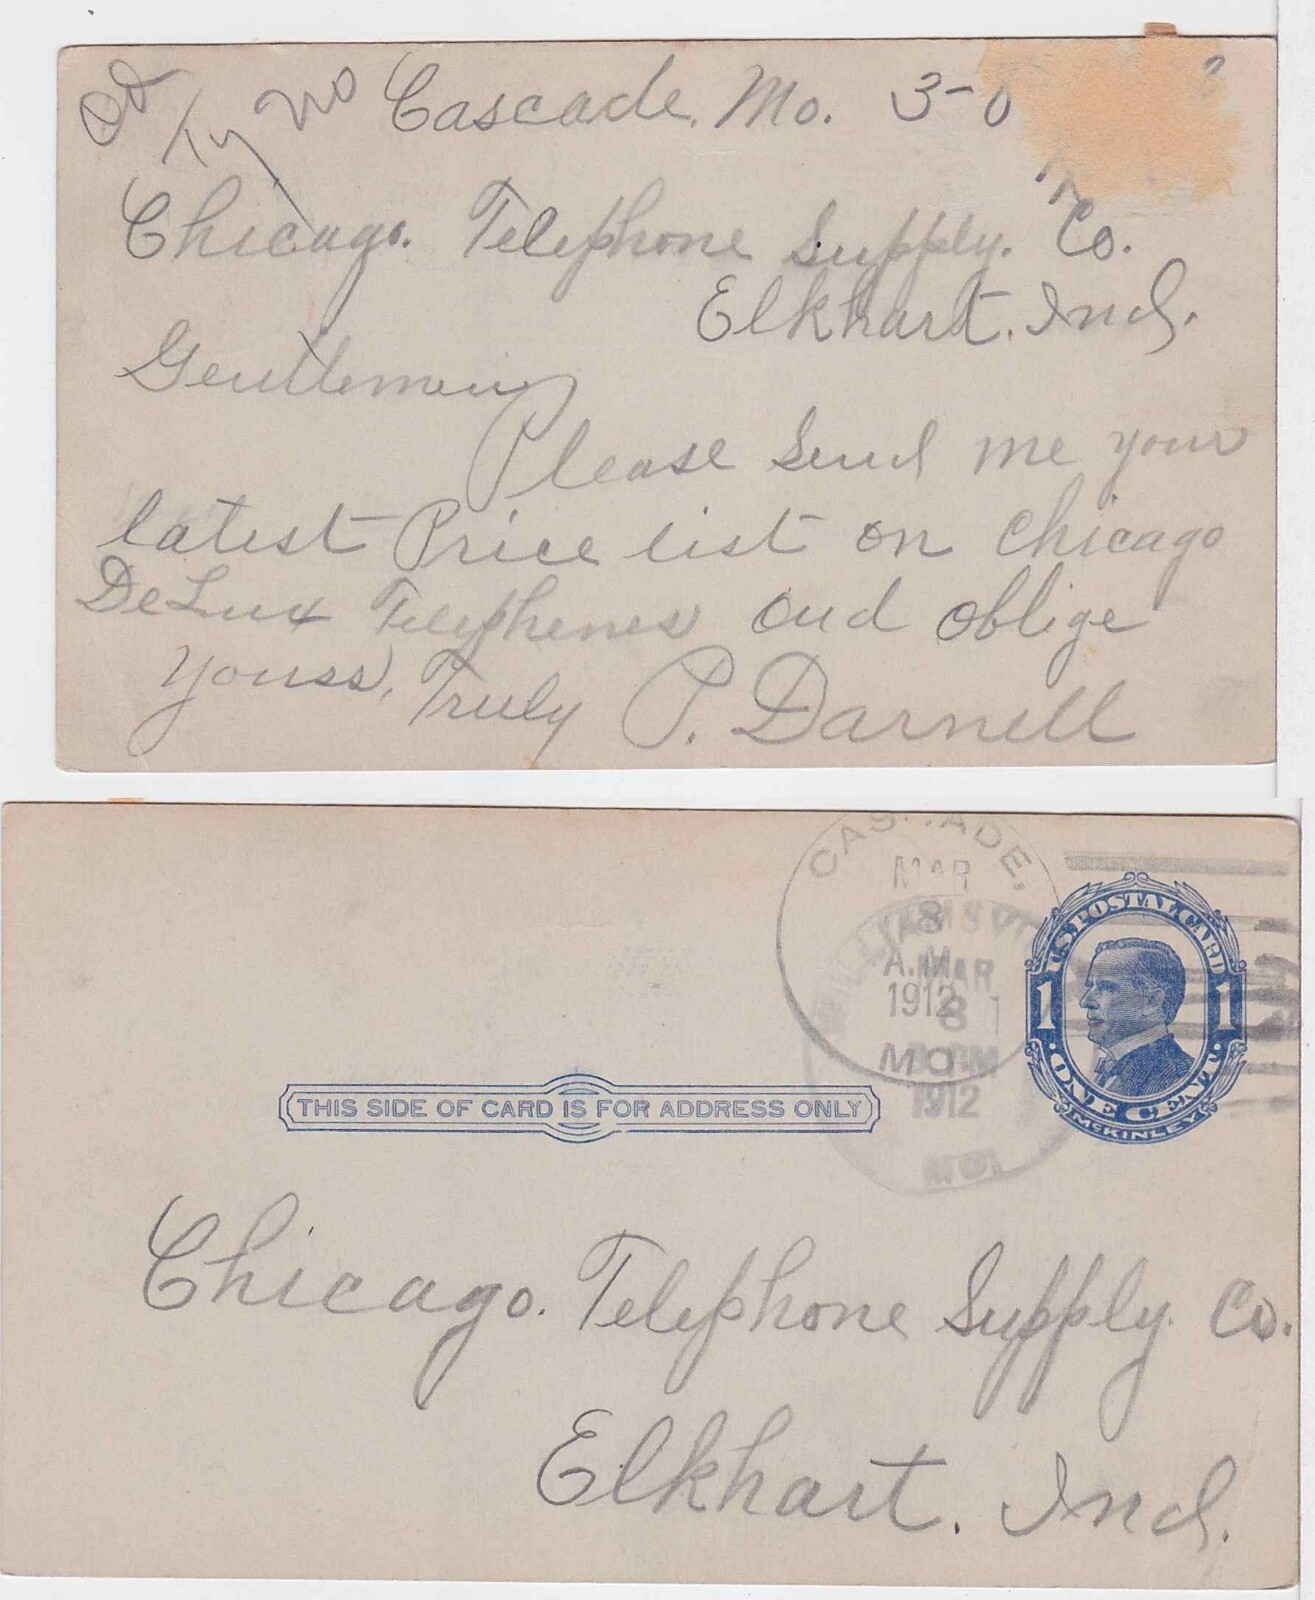 Cascade, Mo. 3-
Chicago. Telephone Supply. Co.
Elkhart. Ind.
Gentlemen
Please Send me your
latest Price list on Chicago
DeLux Telephenes and oblige
Yourss, Truly P. Darnell
CASCADE,
MAR
8
A.M.
1912
MO.
WILLIAMSV
MAR
8
PM
1912
MO.
U.S. POSTAL CARD
1 1
· ONE CENT ·
McKINLEY
THIS SIDE OF CARD IS FOR ADDRESS ONLY
Chicago. Telephone Supply. Co.
Elkhart. Ind.